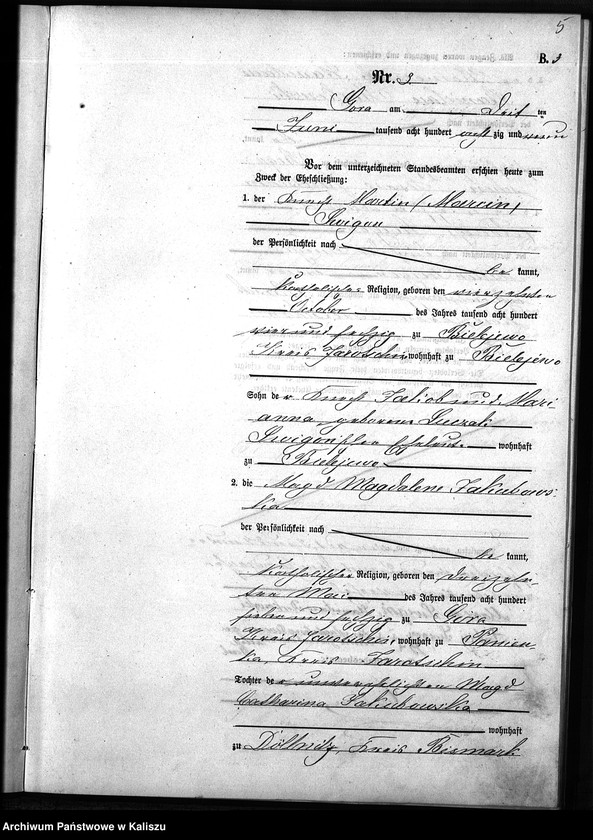 5
B. 3
Nr. 3.
Gora am Drit ten
Juni tausend acht hundert acht zig und neun
Vor dem unterzeichneten Standesbeamten erschien heute zum
Zweck der Eheschließung:
1. der Knecht Martin (Marcin)
der Persönlichkeit nach
be kannt,
katholischer Religion, geboren den vierzehnten
October des Jahres tausend acht hundert
vier und sechzig zu
Kreis Jarotschin wohnhaft zu
Sohn de r Knecht Jakob und Mari-
anna geborene
Eheleute wohnhaft
zu
2. die Magd Magdalena Jakubows-
ka
der Persönlichkeit nach
be kannt,
katholischer Religion, geboren den dreizehn-
ten Mai des Jahres tausend acht hundert
sieben und sechzig zu Gora
Kreis Jarotschin, wohnhaft zu Panien-
ka, Kreis Jarotschin
Tochter de r unverehelichten Magd
Catharina Jakubowska
wohnhaft
zu Döllnitz, Kreis Bismark
Archiwum Państwowe w Kaliszu